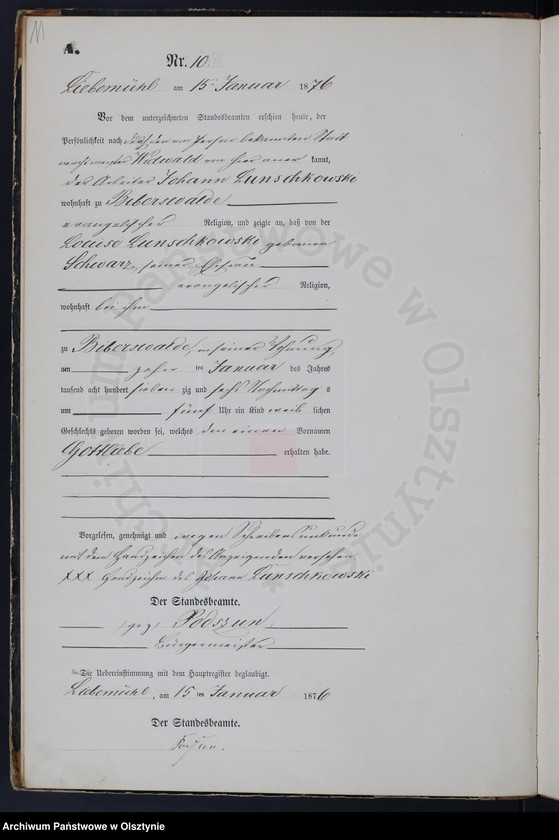 11
A.
Nr. 10
Liebemühl am 15ten Januar 1876
Vor dem unterzeichneten Standesbeamten erschien heute, der
Persönlichkeit nach durch den von Person bekannten Stadt
wachtmeister von hier aner kannt,
der Arbeiter Johann Lunschkowski
wohnhaft zu Biberswalde
evangelischer Religion, und zeigte an, daß von der
Louise Lunschkowski geborenen
Schwarz, seiner Ehefrau
evangelischer Religion,
wohnhaft bei ihm
zu Biberswalde, in seiner Wohnung,
am zehn ten Januar des Jahres
tausend acht hundert sieben zig und sechs Nachmittag s
um fünf Uhr ein Kind weib lichen
Geschlechts geboren worden sei, welches den einen Vornamen
Gottliebe erhalten habe.
Vorgelesen, genehmigt und wegen Schreibensunkunde
mit dem Handzeichen des Anzeigenden versehen
XXX Handzeichen des Johann Lunschkowski
Der Standesbeamte.
(gez) Podszun,
Bürgermeister
Die Uebereinstimmung mit dem Hauptregister beglaubigt.
Liebemühl, am 15 ten Januar 1876
Der Standesbeamte.
Archiwum Państwowe w Olsztynie
Archiwum Państwowe w Olsztynie